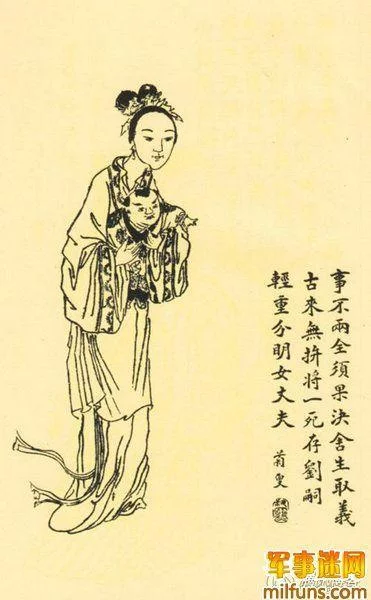 事不兩全須果決舍生取義
古來無拚將一死存劉嗣
輕重分明女丈夫
菊叟
军事迷网
milfuns.com